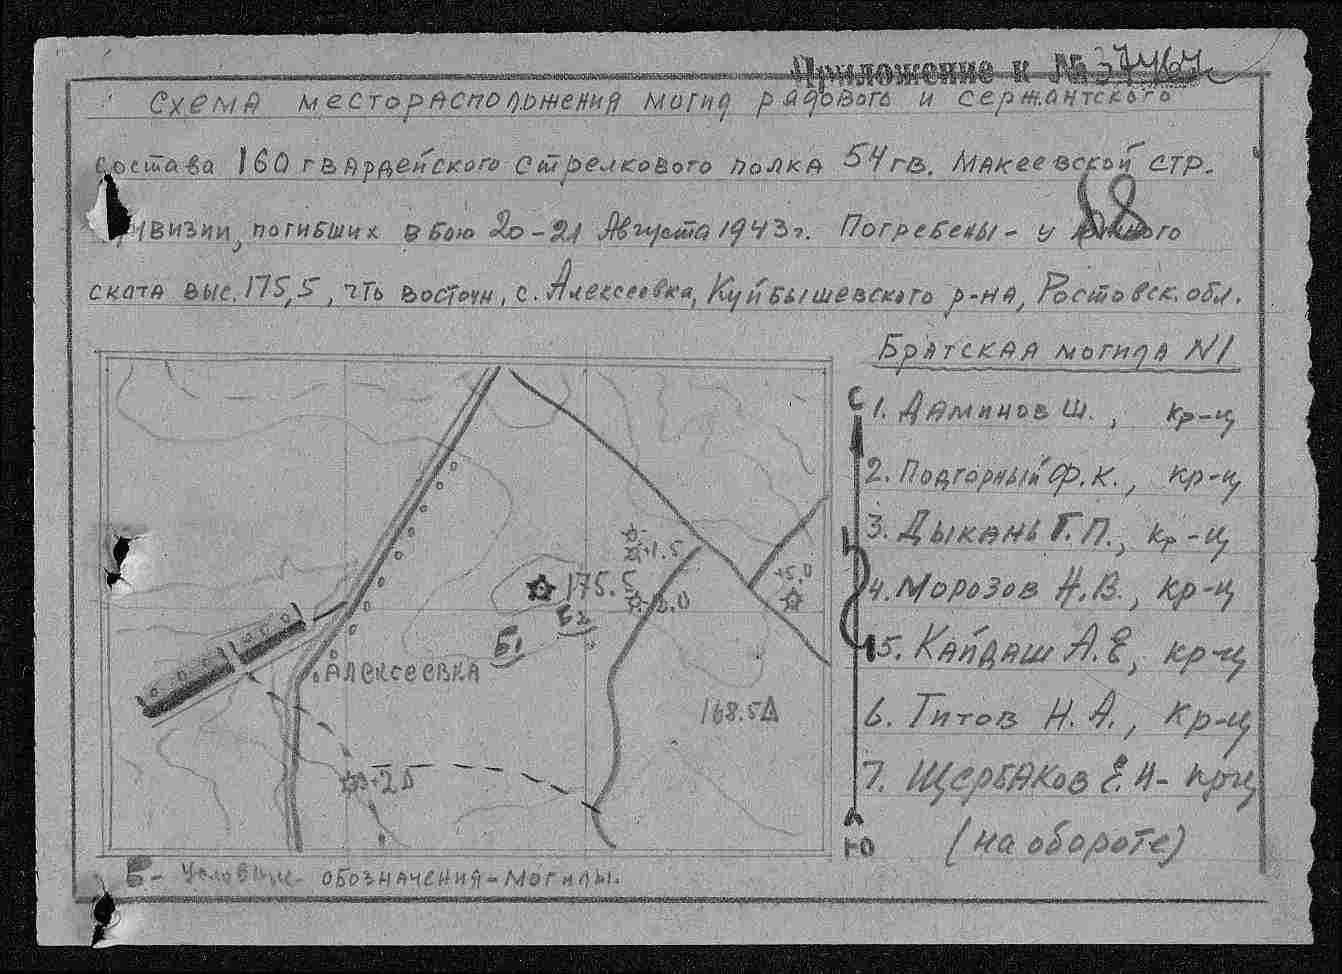 Приложение к № 37464с
Схема месторасположения могил рядового и сержантского
состава 160 гвардейского стрелкового полка 54 гв. Макеевской стр.
дивизии, погибших в бою 20-21 Августа 1943 г. Погребены - у южного
68
ската выс. 175,5, что восточн, с. Алексеевка, Куйбышевского р-на, Ростовск. обл.
Братская могила N1
С
1. Даминов Ш., кр-ц
2. Подгорный Ф.К., кр-ц
3. Дыкань Г.П., кр-ц
4. Морозов Н.В., кр-ц
5. Кайдаш А.Е, кр-ц
6. Титов Н.А., кр-ц
7. Щербаков Е.Н- кр-ц
(на обороте)
Ю
+1.5
175.5
+5.0
Б2
Б1
Алексеевка
168.5
+2
Б - Условные обозначения - могилы.